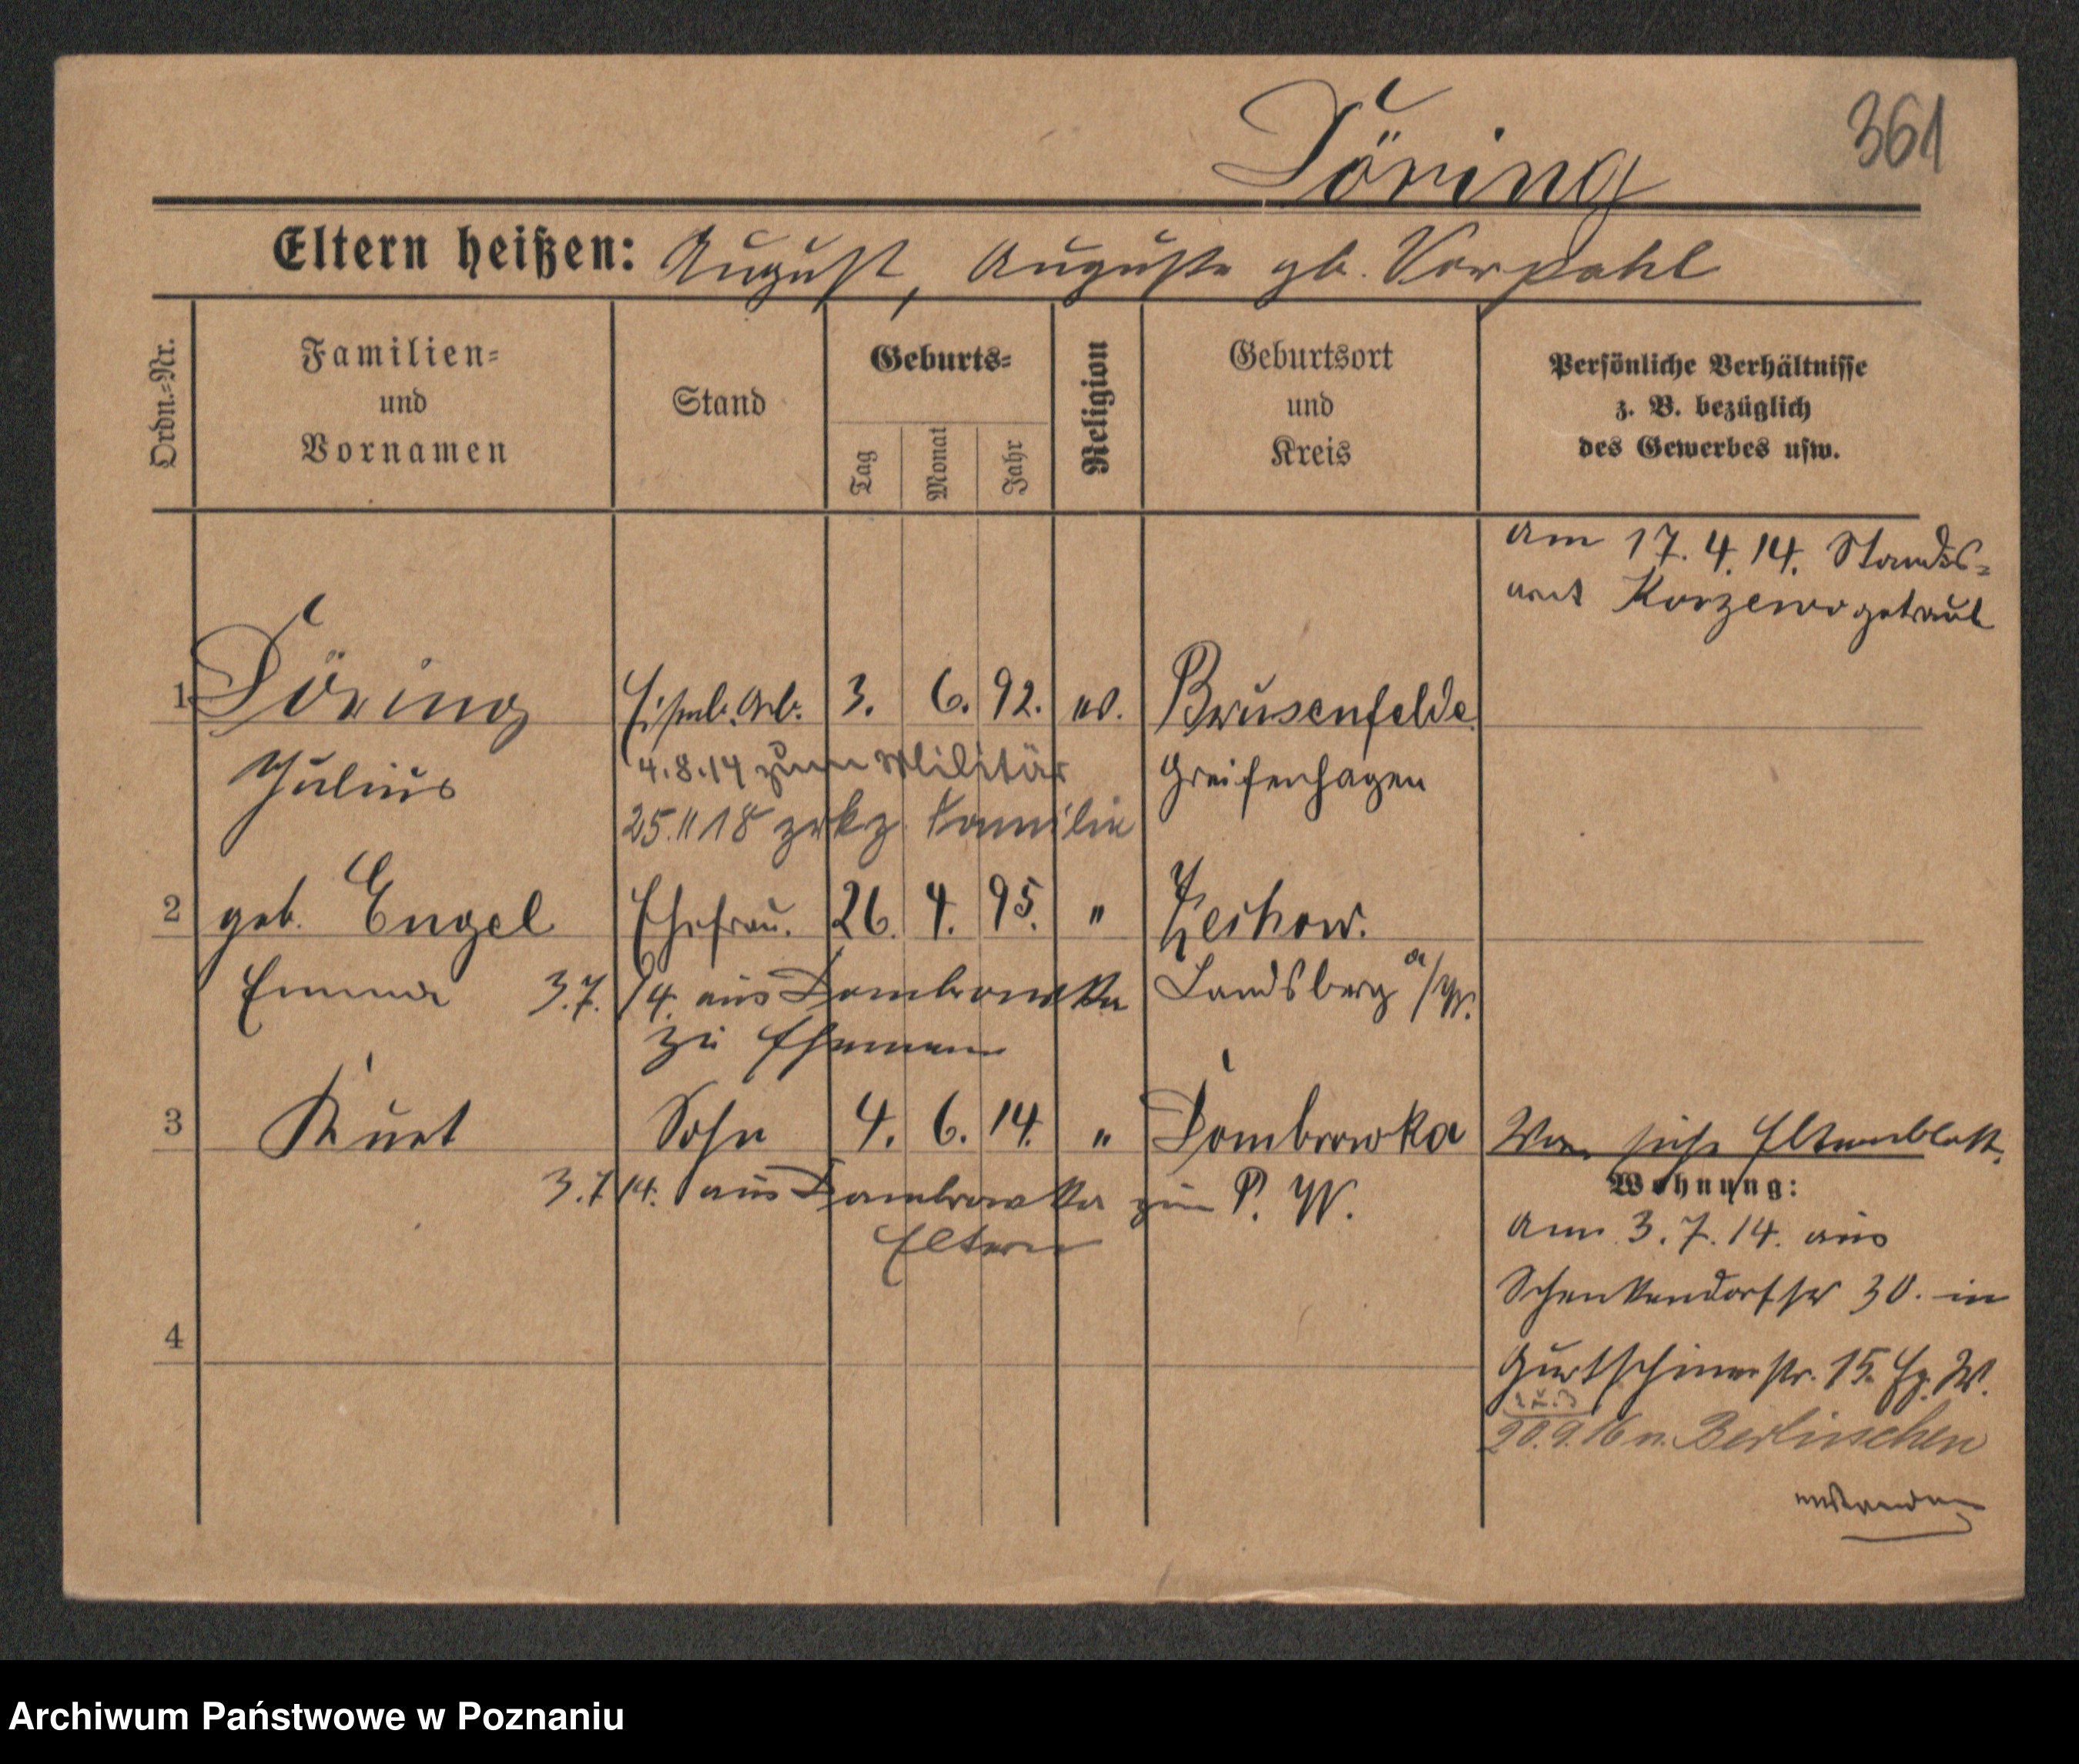 361
Döring
Eltern heißen: August, Auguste gb. Vorpahl
Ordn.=Nr.
Familien=
und
Vornamen
Stand
Geburts=
Tag
Monat
Jahr
Religion
Geburtsort
und
Kreis
Persönliche Verhältnisse
z. B. bezüglich
des Gewerbes usw.
am 17.4.14. Stands=
amt getraut
1 Döring Eisenb. Arb. 3. 6. 92. ev. Brusenfelde
Julius 4.8.14 zum Militär Greifenhagen
25.11 18 Familie
2 geb. Engel Ehefrau. 26. 4. 95. " Zechow.
Emma 3.7.14. aus Dombrowka Landsberg a/W.
zu Ehemann
3 Kurt Sohn 4. 6. 14. " Dombrowka siehe Elternblatt.
3.7.14. aus Dombrowka zu P. W.
Eltern
Wohnung:
am 3.7.14. aus
Schenkendorfstr 30. in
Gurtschinerstr. 15.
2 u. 3
20.9.16 n. Berlinchen
4
Archiwum Państwowe w Poznaniu